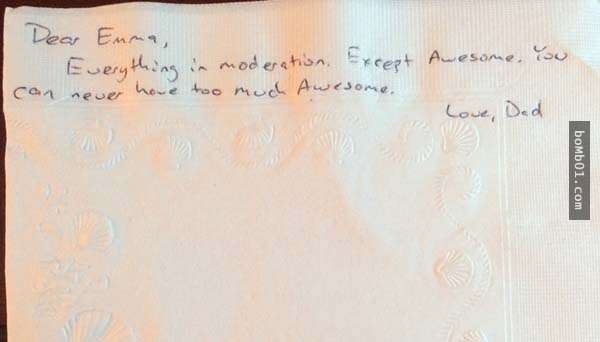 Dear Emma,
Everything in moderation. Except Awesome. You
can never have too much Awesome.
Love, Dad
boMb01.com